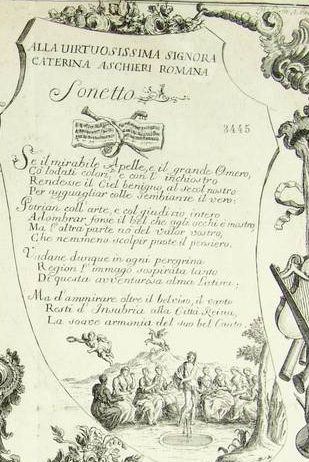 ALLA VIRTUOSISSIMA SIGNORA
CATERINA ASCHIERI ROMANA
Sonetto
3445
Se il mirabile Apelle, e il grande Omero,
Co' lodati colori, e con l'inchiostro
Rendesse il Ciel benigno al secol nostro
Per agguagliar colle sembianze il vero:
Potrian coll'arte, e col giudizio intero
Adombrar forse il bel che agli occhi è mostro
Ma l'altra parte no del valor vostro,
Che nemmeno scolpir puote il pensiero.
Vadane dunque in ogni peregrina
Region l'immago sospirata tanto
Di questa avventurosa alma Latina;
Ma d'ammirare oltre il bel viso, il vanto
Resti d'Insubria alla Città Reina,
La soave armonia del suo bel Canto.